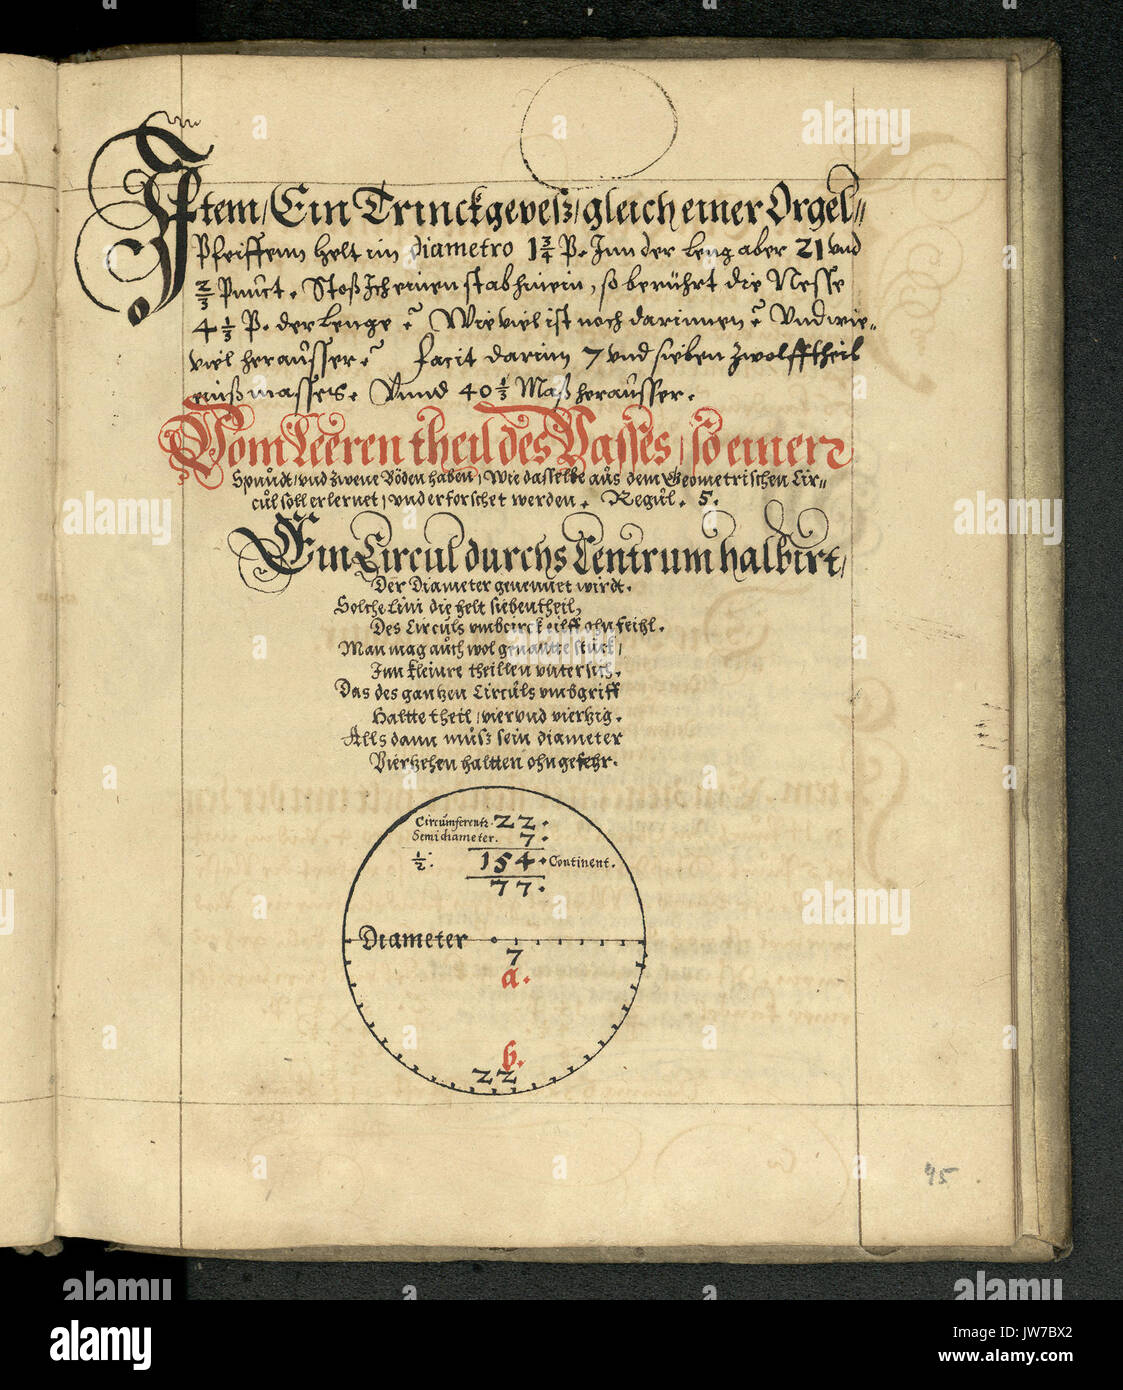 Item/ Ein Trinckgevesz/ gleich einer Orgel=
Pfeiffenn helt im diametro 1 3/4 P. Inn der leng aber 21 vnd
2/3 Punct. Stoß Ich einen stab hinein, so berührt die Nesse
4 1/3 P. der lenge? Wie viel ist noch darinnen? Vnd wie=
viel heraůsser? facit darinn 7 vnd sieben zwolfftheil
einß masses. Vnnd 40 1/3 Maß heraůsser.
Vom Leeren theil des Vasses/ so einen
Spůndt/ vnd zwene Böden haben/ Wie dasselbe aůs dem Geometrischen Cir=
cůl soll erlernet/ vnd erforschet werden. Regůl. 5.
Ein Circul durchs Centrum halbirt/
Der Diameter genennet wirdt.
Solche Lini die helt siebentheil,
Des Circůls vmbcirck eilff ohn feihl.
Man mag aůch wol genante stůck/
Inn kleinre theillen vnter sich.
Das des gantzen Circůls vmbgriff
Haltte theil/ vier vnd viertzig.
Alls dann můsz sein diameter
Viertzehen haltten ohngefehr.
Circůmferentz. 22.
Semidiameter. 7.
1/2. 154. Continent.
77.
Diameter
7
a.
b.
22
45
alamy
www.alamy.com
JW7BX2